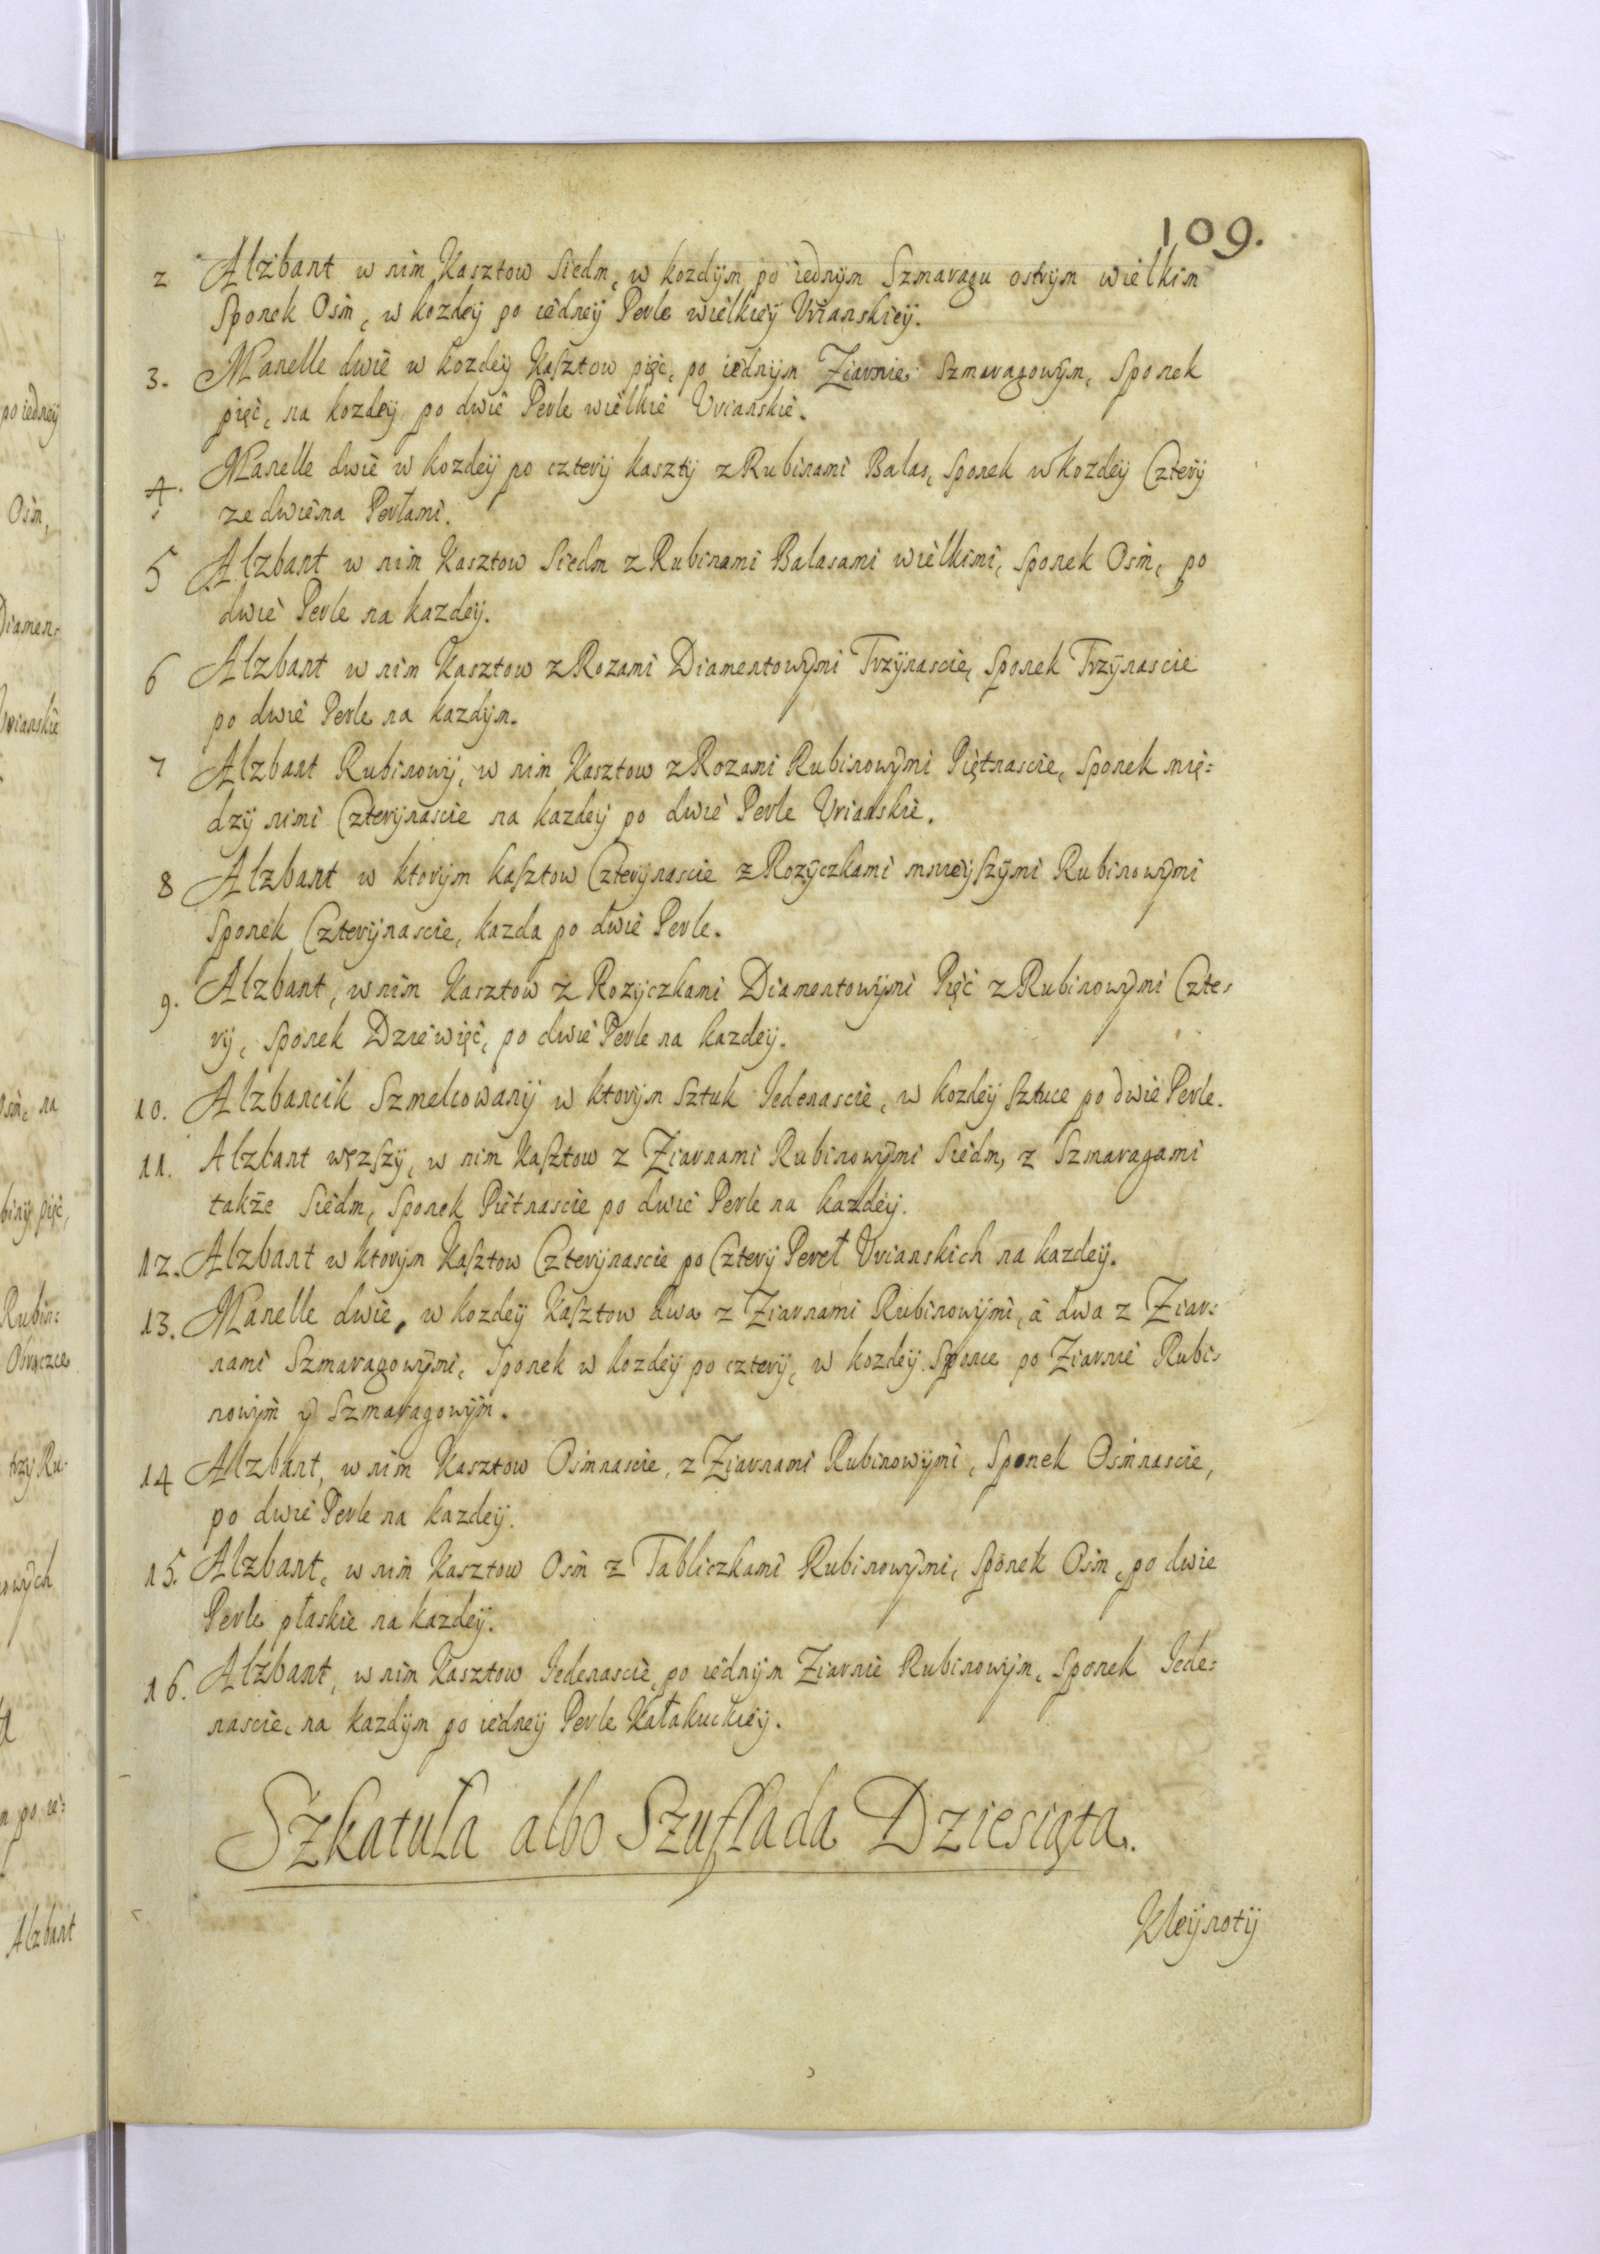 109.
2 Alzbant w nim Kasztow Siedm, w kozdym po iednym Szmaragu ostrym wielkim
Sponek Osm, w kozdey po iedney Perle wielkiey Vrianskiey.
3. Manelle dwie w kozdey Kasztow pięć, po iednym Ziarnie Szmaragowym, Sponek
pięć, na kozdey po dwie Perle wielkie Vrianskie.
4. Manelle dwie w kozdey po cztery kaszty z Rubinami Balas, Sponek w kozdey Cztery
ze dwiema Perłami.
5 Alzbant w nim Kasztow Siedm z Rubinami Balasami wielkimi, Sponek Osm, po
dwie Perle na kazdey.
6 Alzbant w nim Kasztow z Rozami Diamentowymi Trzynascie, Sponek Trzynascie
po dwie Perle na kazdym.
7 Alzbant Rubinowy, w nim Kasztow z Rozami Rubinowymi Piętnascie, Sponek mię:
dzy nimi Czterynascie na kazdey po dwie Perle Vrianskie.
8 Alzbant w ktorym kasztow Czterynascie z Rozyczkami mnieyszymi Rubinowymi
Sponek Czterynascie, kazda po dwie Perle.
9. Alzbant, w nim Kasztow z Rozyczkami Diamentowymi Pięć z Rubinowymi Czte:
ry, Sponek Dziewięć, po dwie Perle na kazdey.
10. Alzbancik Szmelcowany w ktorym Sztuk Iedenascie, w kozdey Sztuce po dwie Perle.
11. Alzbant węzszy, w nim Kasztow z Ziarnami Rubinowymi Siedm, z Szmaragami
także Siedm, Sponek Piętnascie po dwie Perle na kazdey.
12. Alzbant w ktorym Kasztow Czterynascie po Cztery Pereł Vrianskich na kazdey.
13. Manelle dwie, w kozdey Kasztow dwa z Ziarnami Rubinowymi, a dwa z Ziar:
nami Szmaragowymi, Sponek w kozdey po cztery, w kozdey Sponce po Ziarnie Rubi:
nowym y Szmaragowym.
14 Alzbant, w nim Kasztow Osmnascie, z Ziarnami Rubinowymi, Sponek Osmnascie,
po dwie Perle na kazdey.
15. Alzbant, w nim Kasztow Osm z Tabliczkami Rubinowymi, Sponek Osm, po dwie
Perle płaskie na kazdey.
16. Alzbant, w nim Kasztow Iedenascie, po iednym Ziarnie Rubinowym, Sponek Iede:
nascie, na kazdym po iedney Perle Kałakuckiey.
Szkatuła albo Szuflada Dziesiąta.
Kleynoty
po iedney
Osm,
Diamen:
Vrianskie
Osm, na
pięć,
Rubin:
Obrączce
trzy Ru:
owych
po ie:
Alzbant